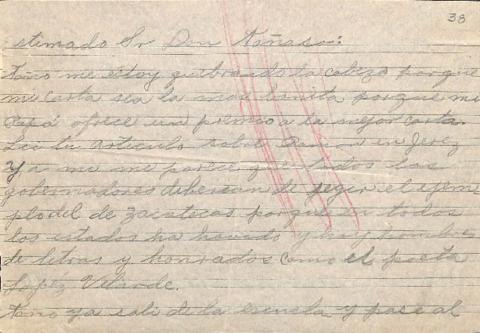 38
estimado Sr Don Toñaso:
Toño me estoy quebrando la cabeza porque
mi carta sea la mas bonita porque mi
Papá ofrece un premio a la mejor carta.
Lei tu articulo sobre en Jerez
y a mi me parece que todos los
gobernadores deberian de seguir el ejem
plo del de Zacatecas porque en todos
los estados ha havido y hay hombres
de letras y honrados como el poeta
Lopéz Velarde.
Toño ya sali de la escuela y pase al